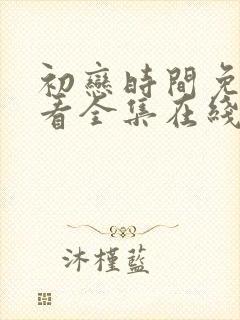 初戀時間免
看全集在綫
沐槿藍